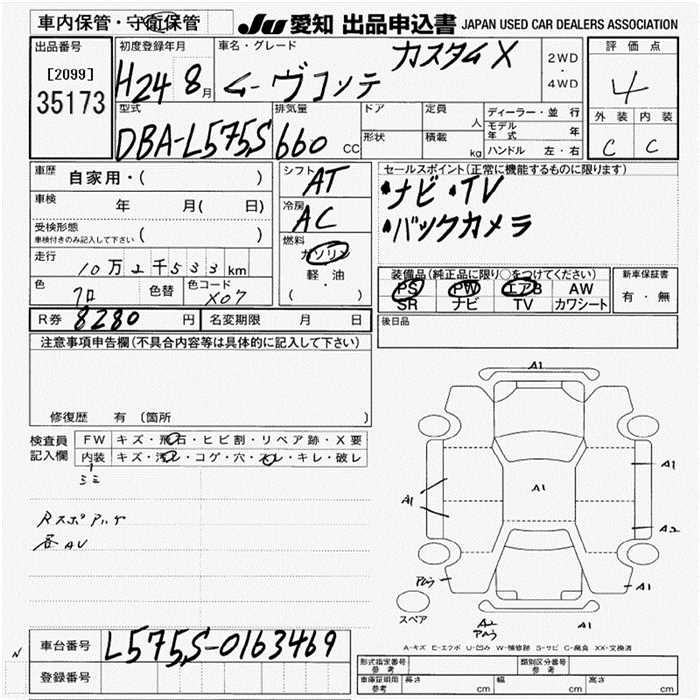 車内保管・守衛保管
JU 愛知 出品申込書 JAPAN USED CAR DEALERS ASSOCIATION
出品番号
[2099]
35173
初度登録年月
H24 8月
車名・グレード
カスタム X
ムーヴコンテ
2WD
・
4WD
評価点
4
外装 内装
C C
型式
DBA-L575S
排気量
660 CC
ドア
形状
定員 人
積載 kg
ディーラー・並行
モデル年式 年
ハンドル 左・右
車歴
自家用・( )
車検 年 月( 日)
受検形態
車検付きのみ記入して下さい ( )
走行
10万2千533km
色
クロ
色替
色コード
X07
シフト
AT
冷房
AC
燃料
ガソリン
軽油
( ・ )
セールスポイント(正常に機能するものに限ります)
・ナビ・TV
・バックカメラ
装備品(純正品に限り○をつけてください)
PS PW エアB AW
SR ナビ TV カワシート
新車保証書
有・無
R券 8280円
名変期限 月 日
後日品
注意事項申告欄(不具合内容等は具体的に記入して下さい)
修復歴 有(箇所 )
検査員
記入欄
FW キズ・飛石・ヒビ割・リペア跡・X要
内装 キズ・汚レ・コゲ・穴・スレ・キレ・破レ
Rスポ
各AU
A1
A1
A1
A1
A2
A1
A2
A1
スペア
A-キズ E-エクボ U-凹み W-補修跡 S-サビ C-腐食 XX-交換済
車台番号 L575S-0163469
登録番号
形式指定番号
参考
類別区分番号
参考
車庫証明用
参考
長さ cm 幅 cm 高さ cm